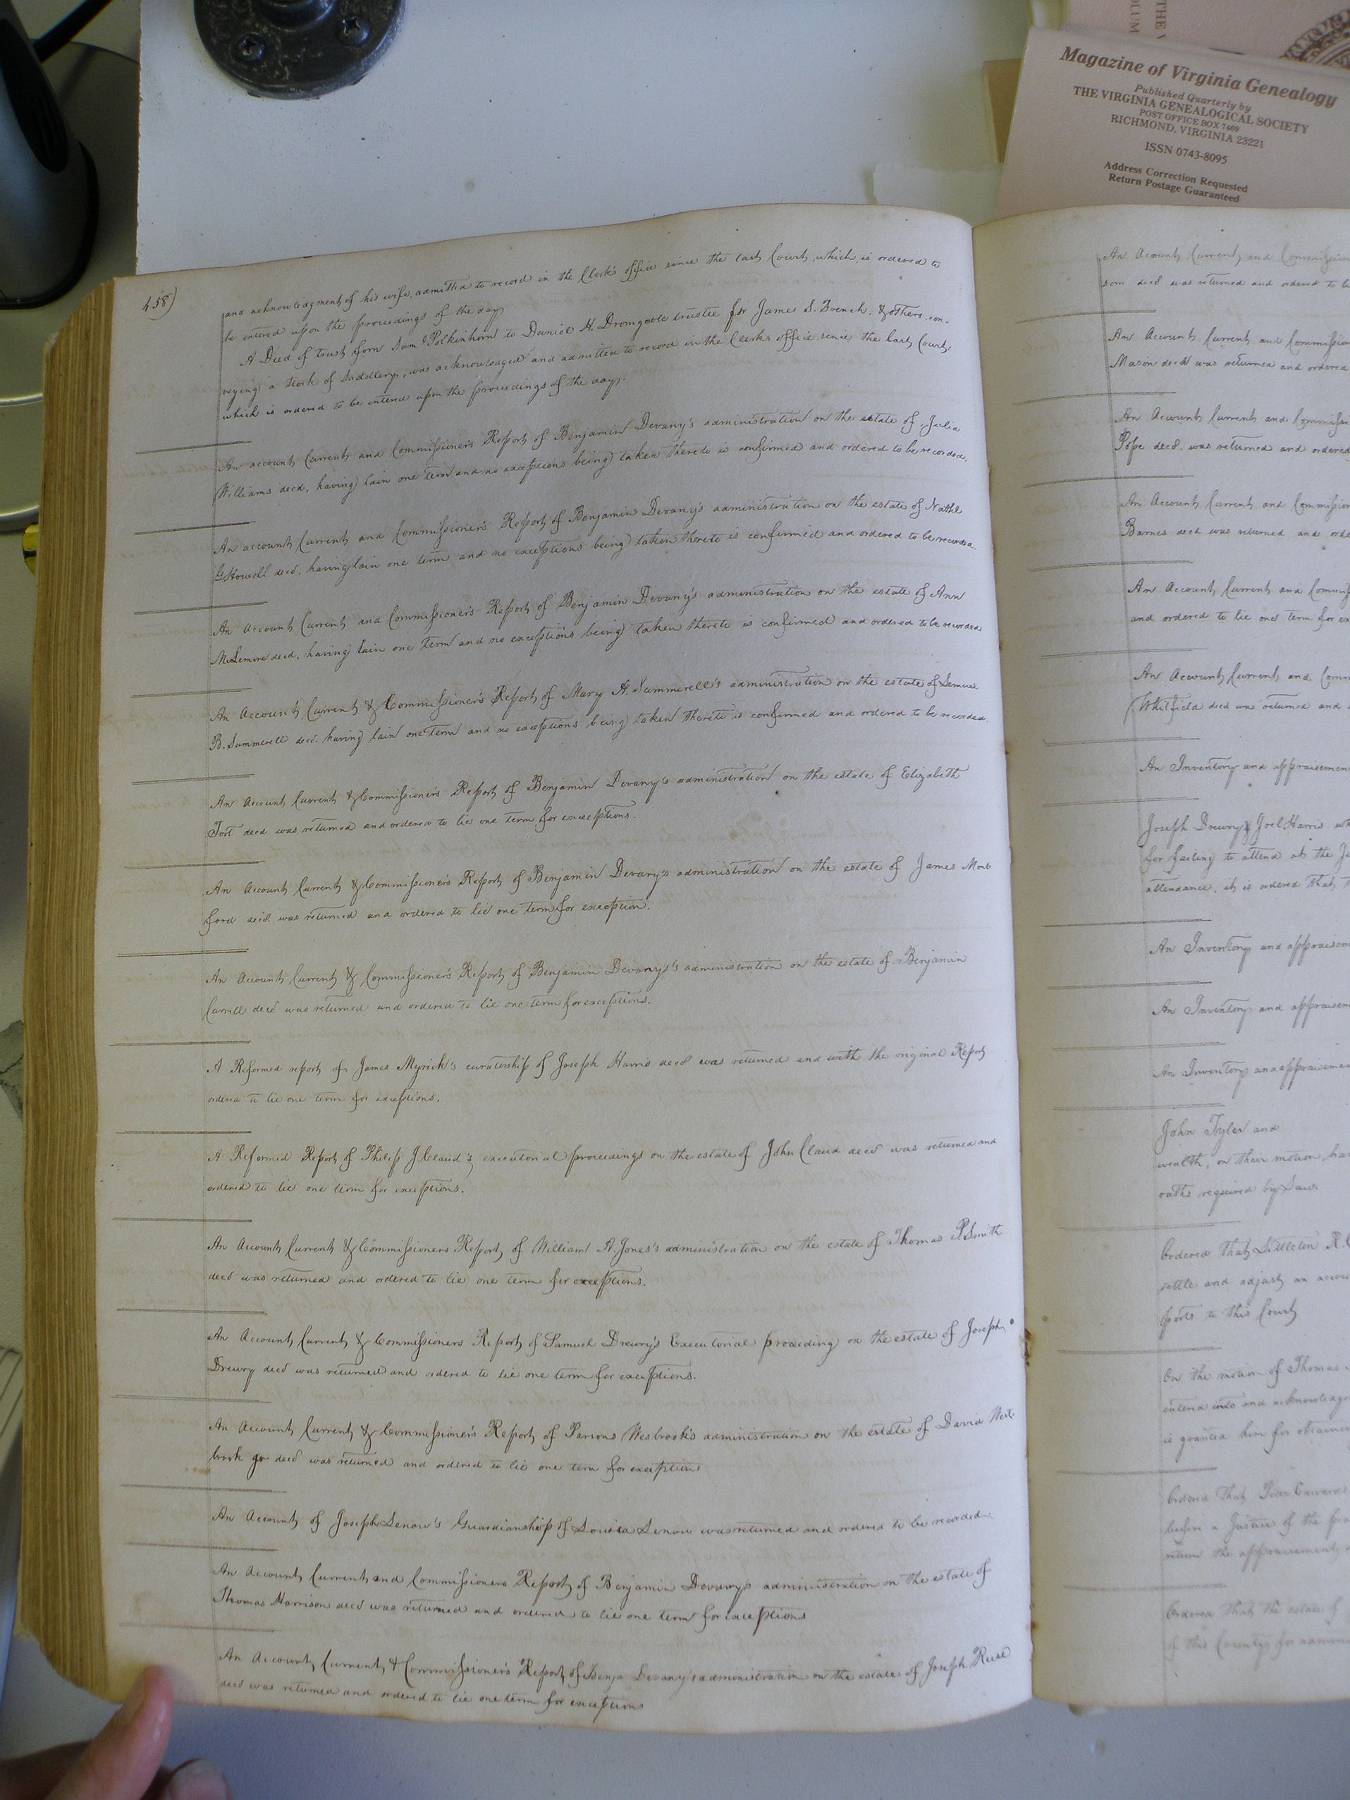 THE V
OLUM
Magazine of Virginia Genealogy
Published Quarterly by
THE VIRGINIA GENEALOGICAL SOCIETY
POST OFFICE BOX 7469
RICHMOND, VIRGINIA 23221
ISSN 0743-8095
Address Correction Requested
Return Postage Guaranteed
458)
and acknowledgment of his wife, admitted to record in the Clerk's office since the last Court, which, is ordered to
be entered upon the proceedings of the day
A Deed of trust from Saml Polkinhorn to Daniel H. Dromgoole trustee for James S. French, & others, con-
veying a stock of Saddlery, was acknowledged and admitted to record in the Clerks office since the last Court,
which is ordered to be entered upon the proceedings of the day.
An account Current and Commissioner's Report of Benjamin Devany's administration on the estate of Julia
Williams decd, having lain one term and no exceptions being taken thereto is confirmed and ordered to be recorded.
An account Current and Commissioner's Report of Benjamin Devany's administration on the estate of Nathl
G Howell decd, having lain one term and no exceptions being taken thereto is confirmed and ordered to be recorded
An Account Current and Commissioner's Report of Benjamin Devany's administration on the estate of Ann
McLemore decd, having lain one term and no exceptions being taken thereto is confirmed and ordered to be recorded
An Account Current & Commissioner's Report of Mary A. Summerell's administration on the estate of Samuel
B. Summerell decd. having lain one term and no exceptions being taken thereto is confirmed and ordered to be recorded
An Account Current & Commissioner's Report of Benjamin Devany's administration on the estate of Elizabeth
Fort decd was returned and ordered to lie one term for exceptions.
An Account Current & Commissioner's Report of Benjamin Devany's administration on the estate of James
ford decd was returned and ordered to lie one term for exception.
An Account Current & Commissioner's Report of Benjamin Devany's administration on the estate of Benjamin
Carrell decd was returned and ordered to lie one term for exceptions.
A Reformed report of James Myrick's curatorship of Joseph Harris decd was returned and with the original Report
ordered to lie one term for exceptions.
A Reformed Report of Philip J. Claud's executorial proceedings on the estate of John Claud decd was returned and
ordered to lie one term for exceptions.
An Account Current & Commissioners Report of William A. Jones's administration on the estate of Thomas P. Smith
decd was returned and ordered to lie one term for exceptions.
An Account Current & Commissioners Report of Samuel Drewry's Executorial proceeding on the estate of Joseph
Drewry decd was returned and ordered to lie one term for exceptions.
An Account Current & Commissioner's Report of Parsons Wesbrook's administration on the estate of David West-
brook decd was returned and ordered to lie one term for exceptions
An Account of Joseph Lenow's Guardianship of Louisa Lenow was returned and ordered to be recorded
An Account Current and Commissioners Report of Benjamin Devany's administration on the estate of
Thomas Harrison decd was returned and ordered to lie one term for exceptions
An Account Current & Commissioner's Report of Benja Devany's administration on the estate of Joseph Reese
decd was returned and ordered to lie one term for exceptions
An Account Current and Commission
som decd was returned and ordered to
An Account Current and Commission
Mason decd was returned and ordered
An Account Current and Commissi
Pope decd. was returned and ordered
An Account Current and Commission
Barnes decd was returned and ord
An Account Current and Commis
and ordered to lie one term for ex
An Account Current and Comm
Whitfield decd was returned and
An Inventory and appraisemen
Joseph Drewry & Joel Harris
for failing to attend as the
attendance, it is ordered that
An Inventory and appraisem
An Inventory and appraisem
An Inventory and appraiseme
John Tyler and
wealth, on their motion
oaths required by Law
Ordered that Littleton R.
settle and adjust an accou
ports to this Court
On the motion of Thomas
entered into and acknowledge
is granted him for obtaining
Ordered that Edwards
before a Justice of the pea
return the appraisement
Ordered that the estate of
of this County for admin